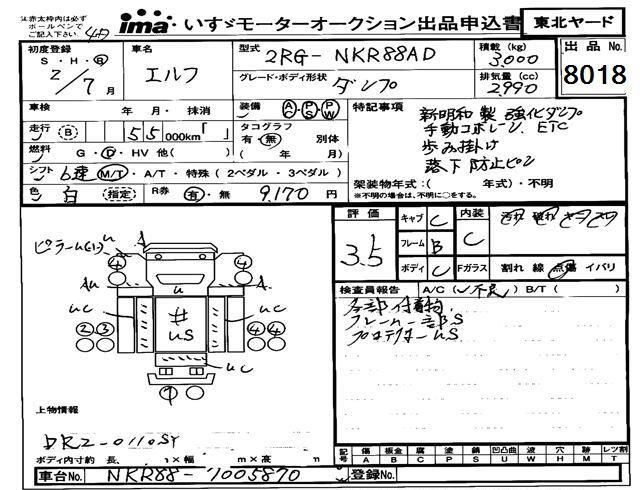 ※赤太枠内は必ず
ボールペンで
ご記入下さい
ima いすゞモーターオークション出品申込書 東北ヤード
初度登録 S・H・R 2/7月
車名 エルフ
型式 2RG-NKR88AD
グレード・ボディ形状 ダンプ
積載 (kg) 3,000
排気量 (cc) 2,990
出品No. 8018
車検 年 月・抹消
装備 AC・PS・PW
走行 B 55 000km「 」
タコグラフ 有・無 別体 ( 年 月)
燃料 G・D・HV 他( )
シフト 6速 M/T・A/T・特殊(2ペダル・3ペダル)
色 白 (指定) R券 有・無 9,170円
特記事項
新明和製 強化ダンプ
手動コボレーン、ETC
歩み掛け
落下防止ピン
架装物年式:( 年式)・不明
※不明の場合は、不明に○をする。
評価 3.5
キャブ C
フレーム B
ボディ C
内装 C
汚れ 破れ
Fガラス 割れ 線 点傷 イバリ
検査員報告 A/C (不良) B/T ( )
各部付着物
フレーム一部S
プロテクターUS
ピラーム(-)
u A A
4 4
AU u A
UC UC
2 3 4 4
# US
UC
9
上物情報
DRZ-0110SY
ボディ内寸約 長、 m×幅 m×高 m
記号 傷 板金 腐 塗 錆 凹凸曲 波 穴 跡 レツ割
A B C P S U W H M T
車台No. NKR88-7005870 登録No.